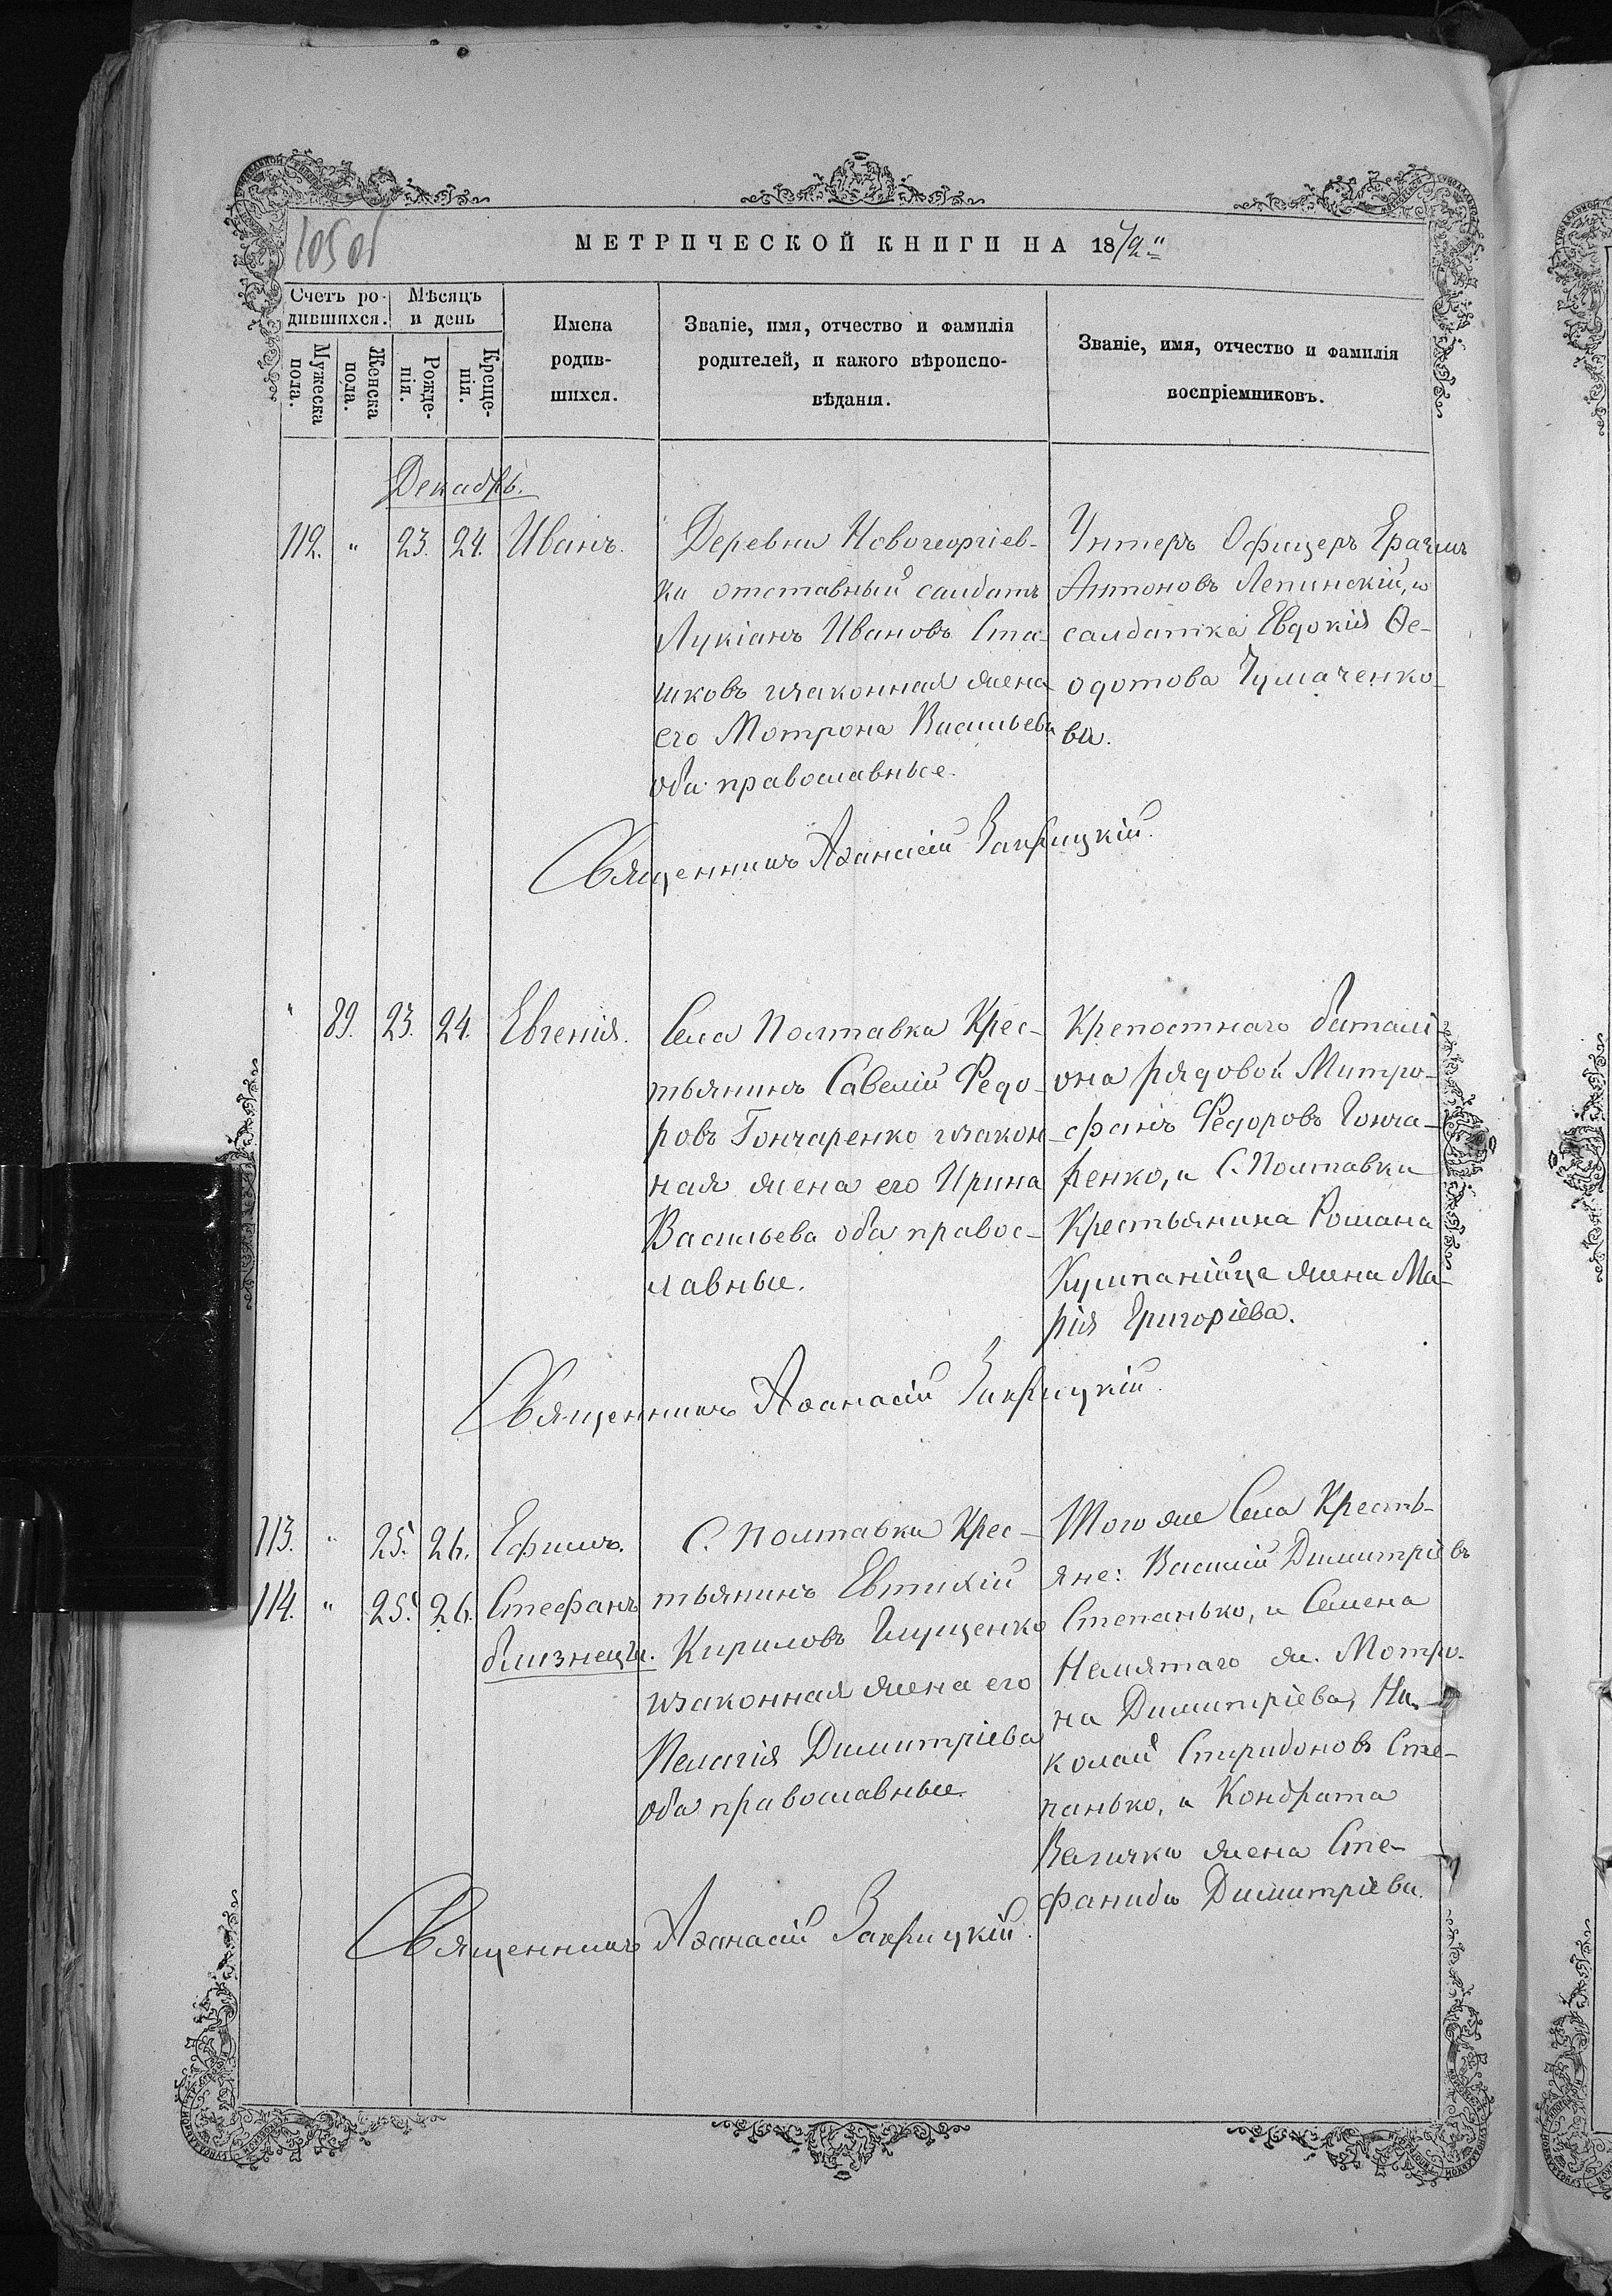 105 об
МЕТРИЧЕСКОЙ КНИГИ НА 1872
Счетъ ро-
дившихся.
Мѣсяцъ
и день
Мужеска
пола.
Женска
пола.
Рожде-
нія.
Креще-
нія.
Имена
родив-
шихся.
Званіе, имя, отчество и фамилія
родителей, и какого вѣроиспо-
вѣданія.
Званіе, имя, отчество и фамилія
воспріемниковъ.
Декабрь.
112. " 23. 24. Иванъ.
Деревни Новогеоргіев-
ки отставный салдатъ
Лукіанъ Ивановъ Ста-
шковъ изаконная жена
его Мотрона Васильева
оба православные.
Унтеръ Офицеръ
Антоновъ Лепинскій, и
салдатка Евдокія Ѳе-
одотова Чумаченко-
ва.
Священникъ Аѳанасій Закрицкій.
" 89. 23. 24. Евгенія.
Села Полтавка Крес-
тьянинъ Савелій Федо-
ровъ Гончаренко изакон-
ная жена его Ирина
Васильева оба правос-
лавные.
Крепостнаго баталі-
она рядовой Митро-
фанъ Федоровъ Гонча-
ренко, и С. Полтавки
Крестьянина Романа
жена Ма-
рія Григоріева.
Священникъ Аѳанасій Закрицкій.
113. " 25. 26. Ефимъ.
114. " 25. 26. Стефанъ
близнецы.
С. Полтавки Крес-
тьянинъ Евтихій
Кириловъ Глущенко
изаконная жена его
Пелагія Димитріева
оба православные.
Того же Села Кресть-
яне: Василій Димитріевъ
Степанько, и Семена
Немятаго ж. Мотро-
на Димитріева, Ни-
колай Спиридоновъ Сте-
панько, и Кондрата
Величка жена Сте-
фанида Димитріева.
Священникъ Аѳанасій Закрицкій.